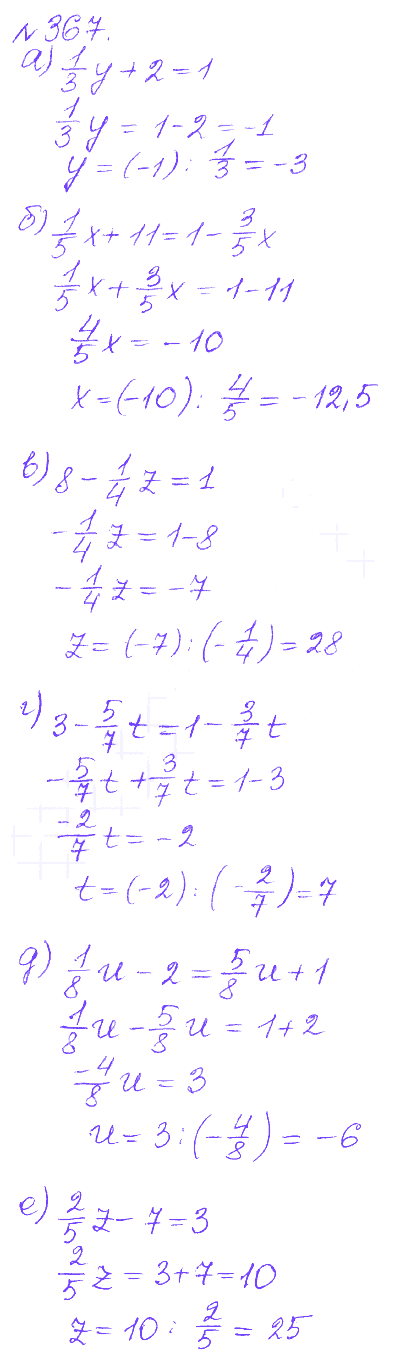 №367.
а) 1/3 y + 2 = 1
1/3 y = 1 - 2 = -1
y = (-1) : 1/3 = -3
б) 1/5 x + 11 = 1 - 3/5 x
1/5 x + 3/5 x = 1 - 11
4/5 x = -10
x = (-10) : 4/5 = -12,5
в) 8 - 1/4 z = 1
-1/4 z = 1 - 8
-1/4 z = -7
z = (-7) : (-1/4) = 28
г) 3 - 5/7 t = 1 - 3/7 t
-5/7 t + 3/7 t = 1 - 3
-2/7 t = -2
t = (-2) : (-2/7) = 7
д) 1/8 u - 2 = 5/8 u + 1
1/8 u - 5/8 u = 1 + 2
-4/8 u = 3
u = 3 : (-4/8) = -6
е) 2/5 z - 7 = 3
2/5 z = 3 + 7 = 10
z = 10 : 2/5 = 25